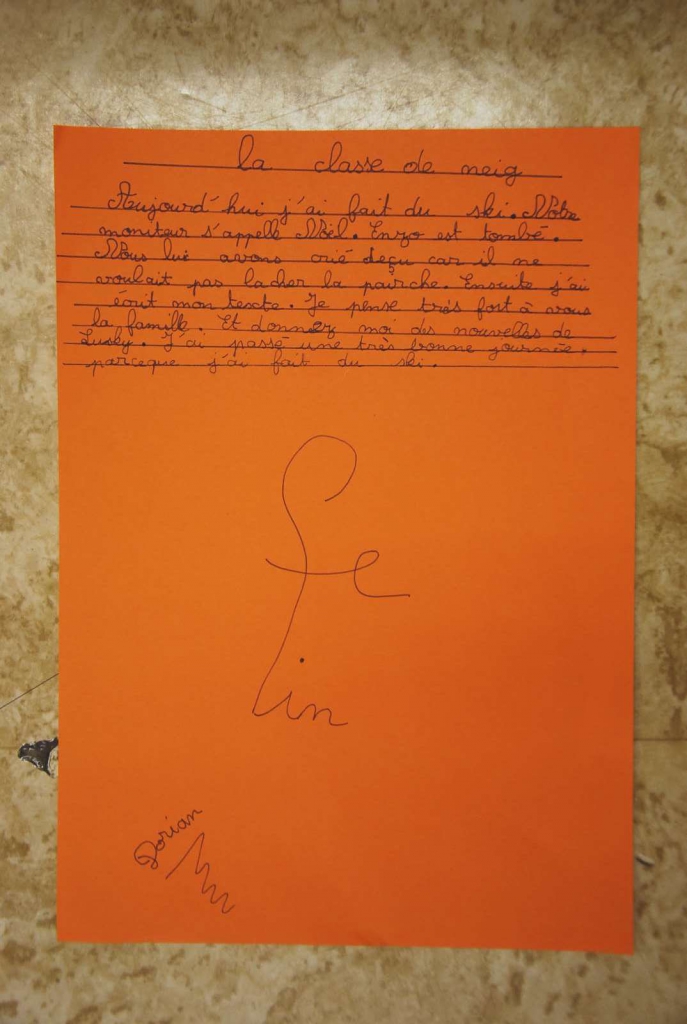 la classe de neig
Aujourd'hui j'ai fait du ski. Notre
moniteur s'appelle Noël. Enzo est tombé.
Nous lui avons crié deçu car il ne
voulait pas lacher la pairche. Ensuite j'ai
écrit mon texcte. Je pense très fort à vous
la famille. Et donnez moi des nouvelles de
Lusky. J'ai passé une très bonne journée.
parceque j'ai fait du ski.
fe
in
Dorian